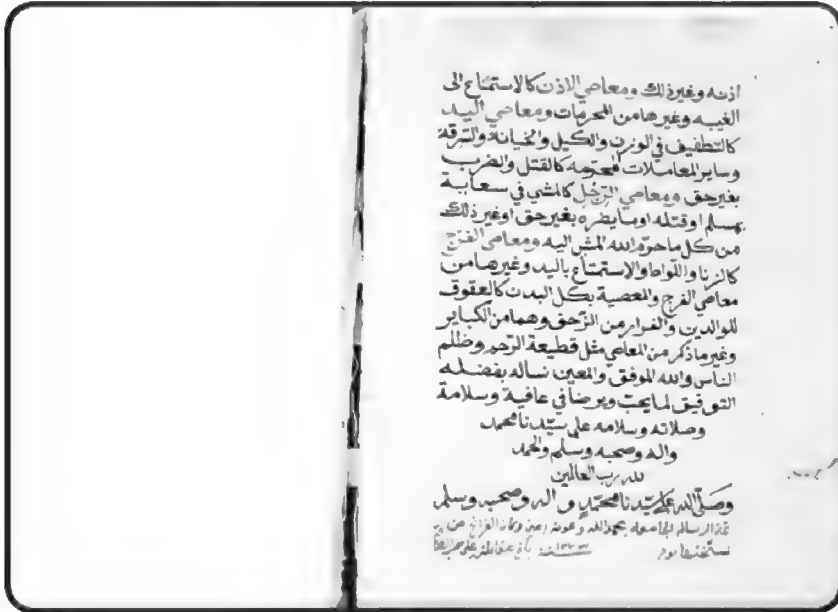 اذنه وغير ذلك ومعاصي الاذن كالاستماع الى
الغيبه وغيرها من المحرمات ومعاصي اليد
كالتطفيف في الوزن والكيل والخيانة والسرقة
وساير المعاملات المحرمه كالقتل والضرب
بغير حق ومعاصي الرّجل كالمشي في سعاية
بمسلم او قتله او بما يضره بغير حق او غير ذلك
من كل ما حرّم الله المشي اليه ومعاصي الفرج
كالزنا واللواط والاستمتاع باليد وغيرها من
معاصي الفرج والمعصية بكل البدن كالعقوق
للوالدين والفرار من الزّحف وهما من الكباير
وغير ما ذكر من المعاصي مثل قطيعة الرّحم وظلم
الناس والله الموفق والمعين نساله بفضله
التوفيق لما يحبّ ويرضا في عافية وسلامة
وصلاته وسلامه على سيّدنا محمد
واله وصحبه وسلم والحمد
لله رب العالمين
وصلّى الله على سيّدنا محمّد واله وصحبه وسلم
الرساله الجامعه بحمد الله وعونه امين وكان الفراغ من
يوم